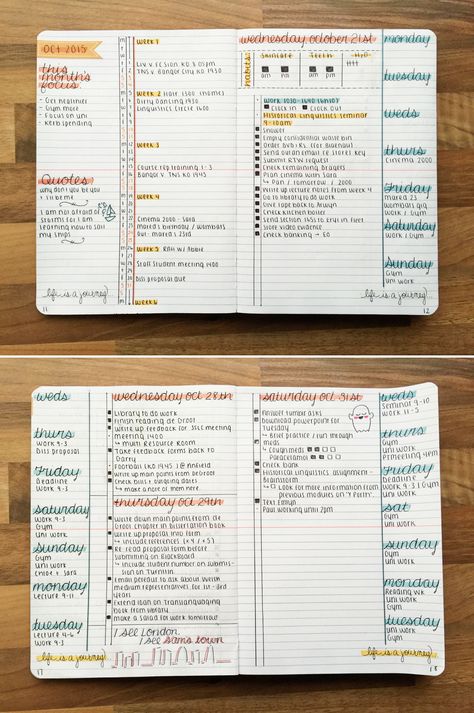 Oct 2015
this
month's
focus
- Get healthier
- Gym more
- Focus on uni
- Keep spending
Quotes
Why don't you be you
& I'll be me
I am not afraid of
storms for I am
learning how to sail
my ships
life is a journey!
11
week 1
week 2
Dirty Dancing 1930
Linguistics Circle 1600
week 3
Course rep training 1-3
Bangor V. TNS KO 1945
week 4
Cinema 2000 - Sara
Mared's birthday / Wombats
Out: Mared's 23rd
week 5 RAH w/ Abbie
Staff Student meeting 1400
Diss proposal due
week 6
wednesday october 21st
habits:
Skincare
am pm
Teeth
am pm
H2O
Work 1030-1640 (unid)
Clock in Clock out
Historical Linguistics Seminar
9-10am
Shower
Empty confidential waste bin
Submit RTW request
Check remaining
Plan cinema with Sara
↳ Pan / tomorrow / 2000
Write up lecture notes from week 4
Go to library & do work
Check kitchen boiler
Store video evidence
Check banking → EO
monday
tuesday
weds
thurs
Cinema 2000
Friday
Mared 23
Wombats gig
Work / Gym
saturday
Uni work / Gym
sunday
Gym
Uni work
life is a journey!
12
weds
Work 9-3
thurs
Work 9-3
Diss proposal
Friday
Deadline
Work 9-3
saturday
Work 9-3
Gym
Uni work
sunday
Gym
Uni work
Chloe + Sara
monday
Lecture 9-11
tuesday
Lecture 4-6
Work 9-3
life is a journey!
17
wednesday oct 28th
Library to do work
Finish reading De Groot
Write up feedback for SSLC meeting
Meeting 1400
↳ Multi Resource Room
Take feedback forms back to
Darry
Football KO 1945 | @ Anfield
Write main points from De Groot
Check bills + outgoing dates
↳ make a note of them here
thursday oct 29th
Write down main points from De
Groot chapter in dissertation book
Write up proposal into form
↳ include references (x4 / x5)
Re-read proposal form before
submitting on BlackBoard
↳ include student number on submis-
sion on Turnitin
Email Peredur to ask about Welsh
medium representatives for 1st - 3rd
years
Extend loan on Translanguaging
book from library
Make a salad for work tomorrow
I see London,
I see Sam's town
saturday oct 31st
Answer tumblr asks
Download powerpoint for
Tuesday
↳ Brief practice / run through
Meds
↳ Cough meds
Paracetamol
Check bank
Historical Linguistics assignment -
Brainstorm
↳ Look for more information from
previous modules on 'Y Porth'.
Text Emlyn
Paul working until 2pm
weds
Seminar 9-10
Work 11-5
thurs
Gym
Uni work
Friday
Deadline
Work 9-3 | Gym
Uni work
sat
Gym
Uni work
sunday
Gym
Uni work
monday
Reading wk
Uni work
Gym
tuesday
Uni work
Gym
life is a journey!
18